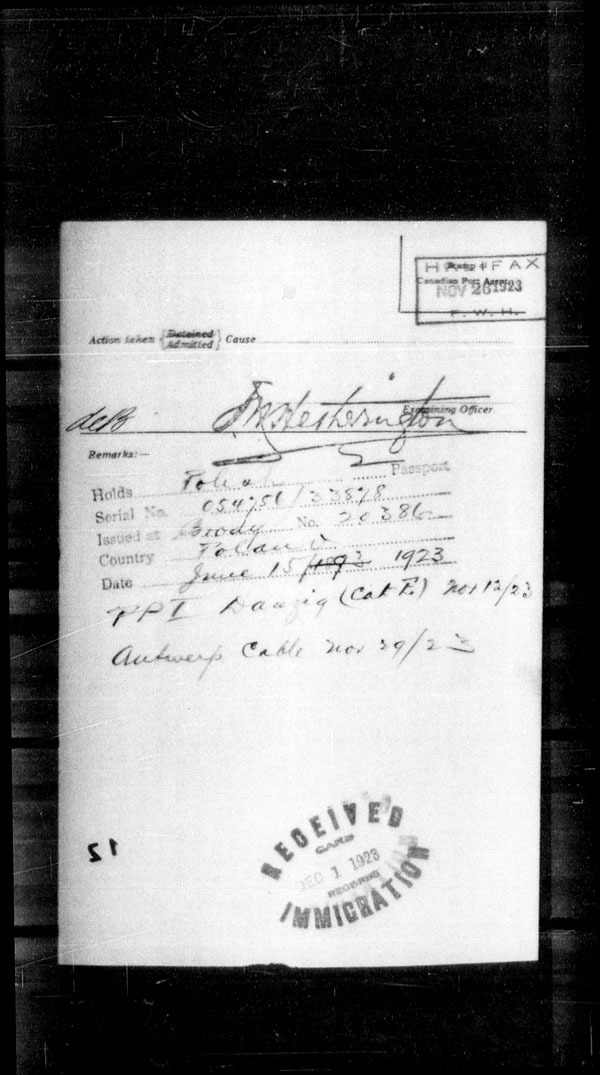 HALIFAX
Stamp of
Canadian Port Agent
NOV 26 1923
F. W. H.
Action taken {Detained Admitted} Cause
Hetherington
Examining Officer
Remarks:—
Holds Polish Passport
Serial No. 054756/33878
Issued at Brody No. 20386
Country Poland
Date June 15/1923 1923
PPI Danzig (Cat E.) Nov 12/23
Antwerp Cable Nov 29/23
RECEIVED
CARD
DEC 1 1923
RECORDS
IMMIGRATION
12